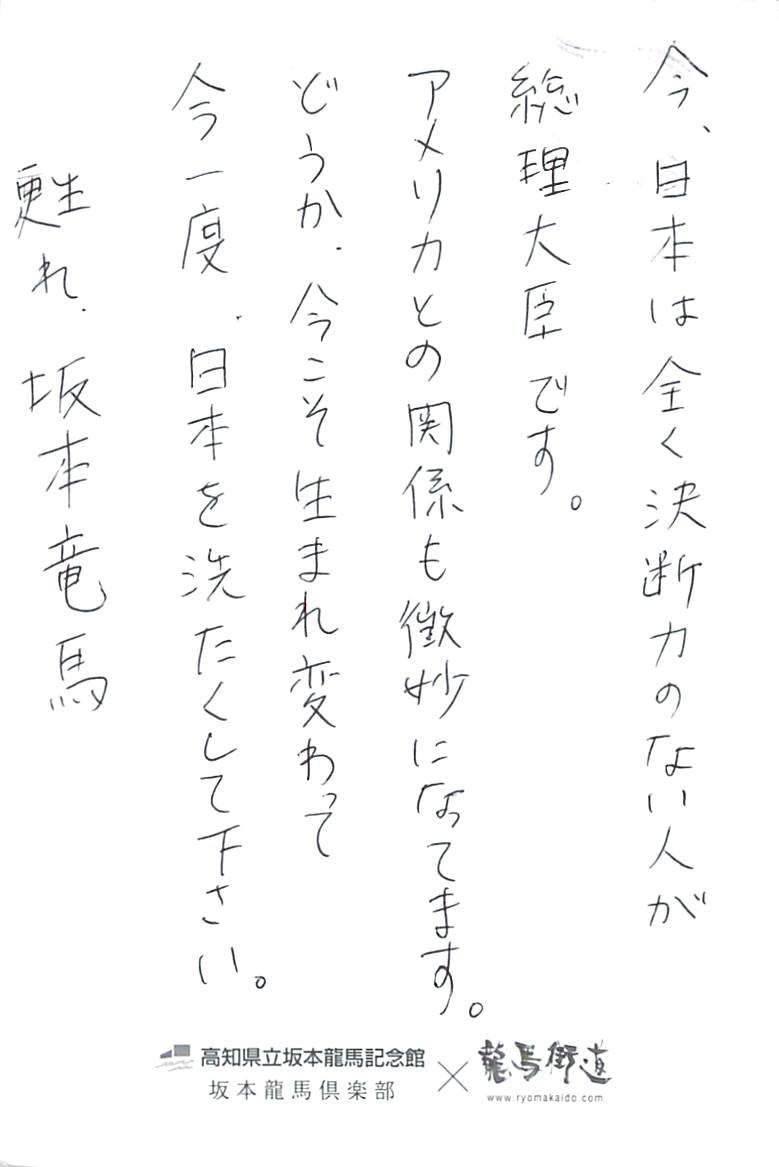 今、日本は全く決断力のない人が
総理大臣です。
アメリカとの関係も微妙になってます。
どうか、今こそ生まれ変わって
今一度、日本を洗たくして下さい。
甦れ、坂本竜馬
高知県立坂本龍馬記念館
坂本龍馬倶楽部
×
龍馬街道
www.ryomakaido.com